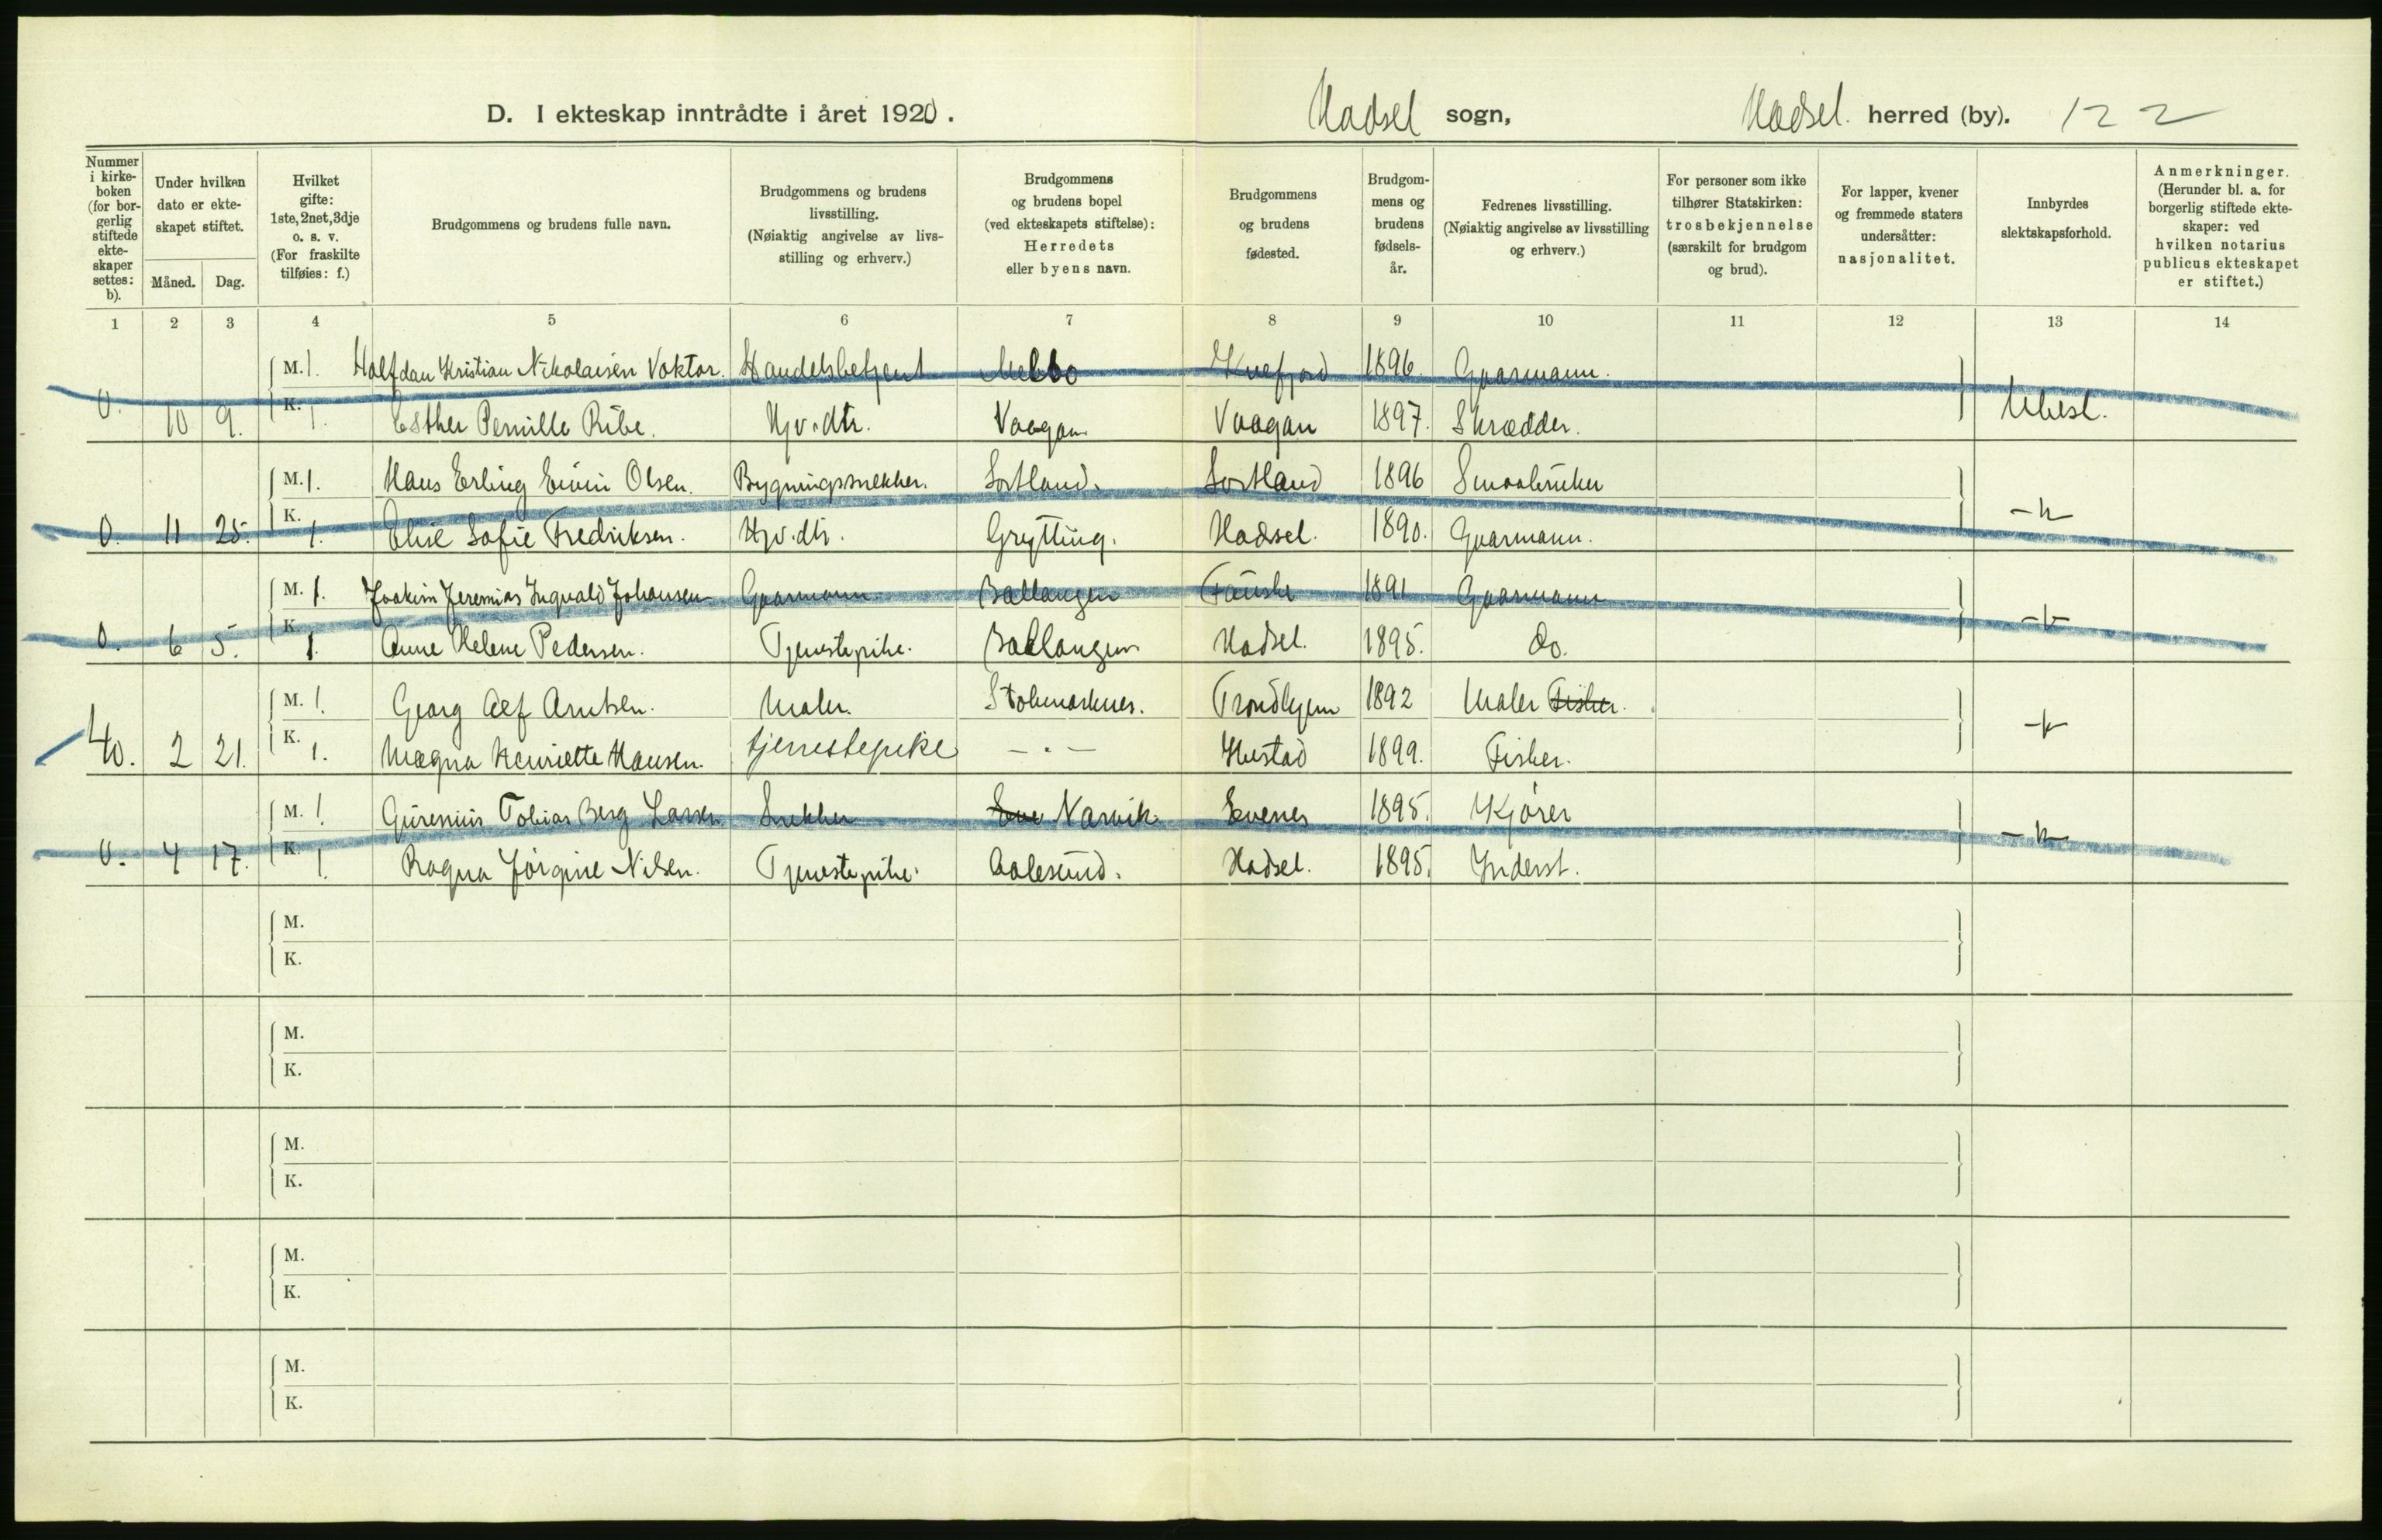 D. I ekteskap inntrådte i året 1920. Hadsel sogn, Hadsel herred (by). 122
Nummer i kirkeboken (for borgerlig stiftede ekteskaper settes: b).
Under hvilken dato er ekteskapet stiftet.
Måned. Dag.
Hvilket gifte: 1ste, 2net, 3dje o. s. v. (For fraskilte tilføies: f.)
Brudgommens og brudens fulle navn.
Brudgommens og brudens livsstilling. (Nøiaktig angivelse av livsstilling og erhverv.)
Brudgommens og brudens bopel (ved ekteskapets stiftelse): Herredets eller byens navn.
Brudgommens og brudens fødested.
Brudgommens og brudens fødselsår.
Fedrenes livsstilling. (Nøiaktig angivelse av livsstilling og erhverv.)
For personer som ikke tilhører Statskirken: trosbekjennelse (særskilt for brudgom og brud).
For lapper, kvener og fremmede staters undersåtter: nasjonalitet.
Innbyrdes slektskapsforhold.
Anmerkninger. (Herunder bl. a. for borgerlig stiftede ekteskaper: ved hvilken notarius publicus ekteskapet er stiftet.)
1 2 3 4 5 6 7 8 9 10 11 12 13 14
M. 1. Halfdan Kristian Nikolaisen Voktor. Handelsbetjent Melbo Kvefjord 1896. Gaarmann.
0. 10 9. K. 1. Esther Pernille Ribe. Hjv.dtr. Vaagan Vaagan 1897. Skrædder. Ubesl.
M. 1. Hans Erling Eivin Olsen. Bygningssnekker. Sortland. Sortland 1896 Smaabruker
0. 11 25. K. 1. Elise Sofie Fredriksen. Hjv.dtr. Grytting. Hadsel. 1890. Gaarmann. -"-
M. 1. Joakim Jeremias Ingvald Johansen Gaarmann Ballangen Fauske 1891 Gaarmann
0. 6 5. K. 1. Anne Helene Pedersen. Tjenestepike. Ballangen Hadsel. 1895. do. -"-
M. 1. Georg Alf Arntsen. Maler. Stokmarknes. Trondhjem 1892 Maler Fisker.
40. 2 21. K. 1. Magna Henriette Hansen. tjenestepike - " - Hustad 1899. Fisker. -"-
M. 1. Gurenius Tobias Berg Larsen Snekker Eve Narvik Evenes 1895. Kjører
0. 4 17. K. 1. Ragna Jørgine Nilsen. Tjenestepike. Aalesund. Hadsel. 1895. Inderst. -"-
M.
K.
M.
K.
M.
K.
M.
K.
M.
K.